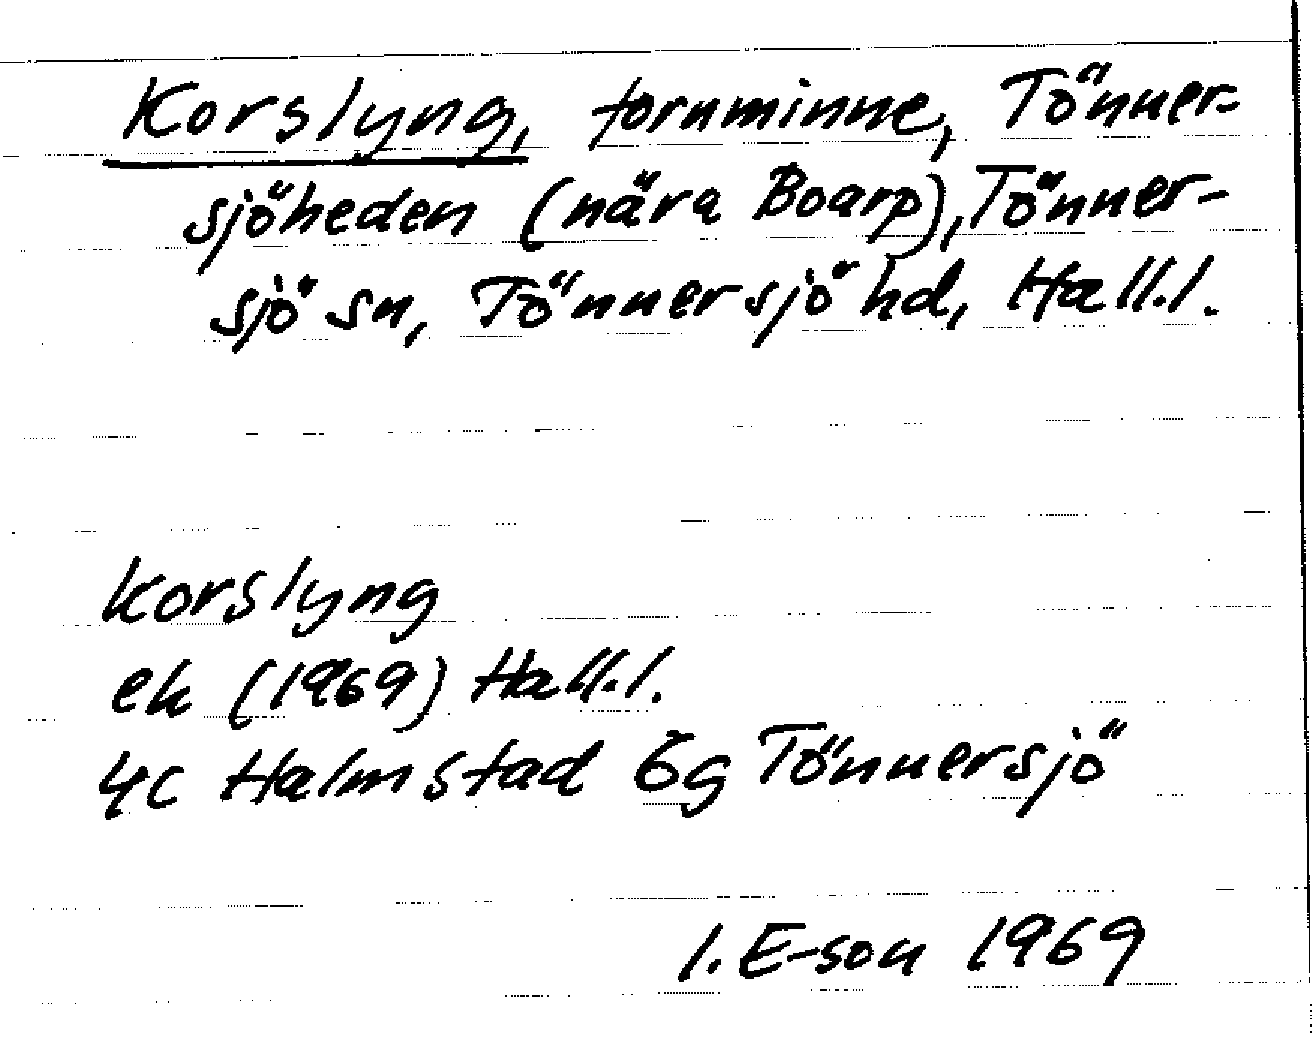 Korslyng, fornminne, Tönner=
sjöheden (nära Boarp), Tönner-
sjö sn, Tönnersjö hd, Hall.l.
Korslyng
ek (1969) Hall.l.
4C Halmstad 6g Tönnersjö
I. E-son 1969